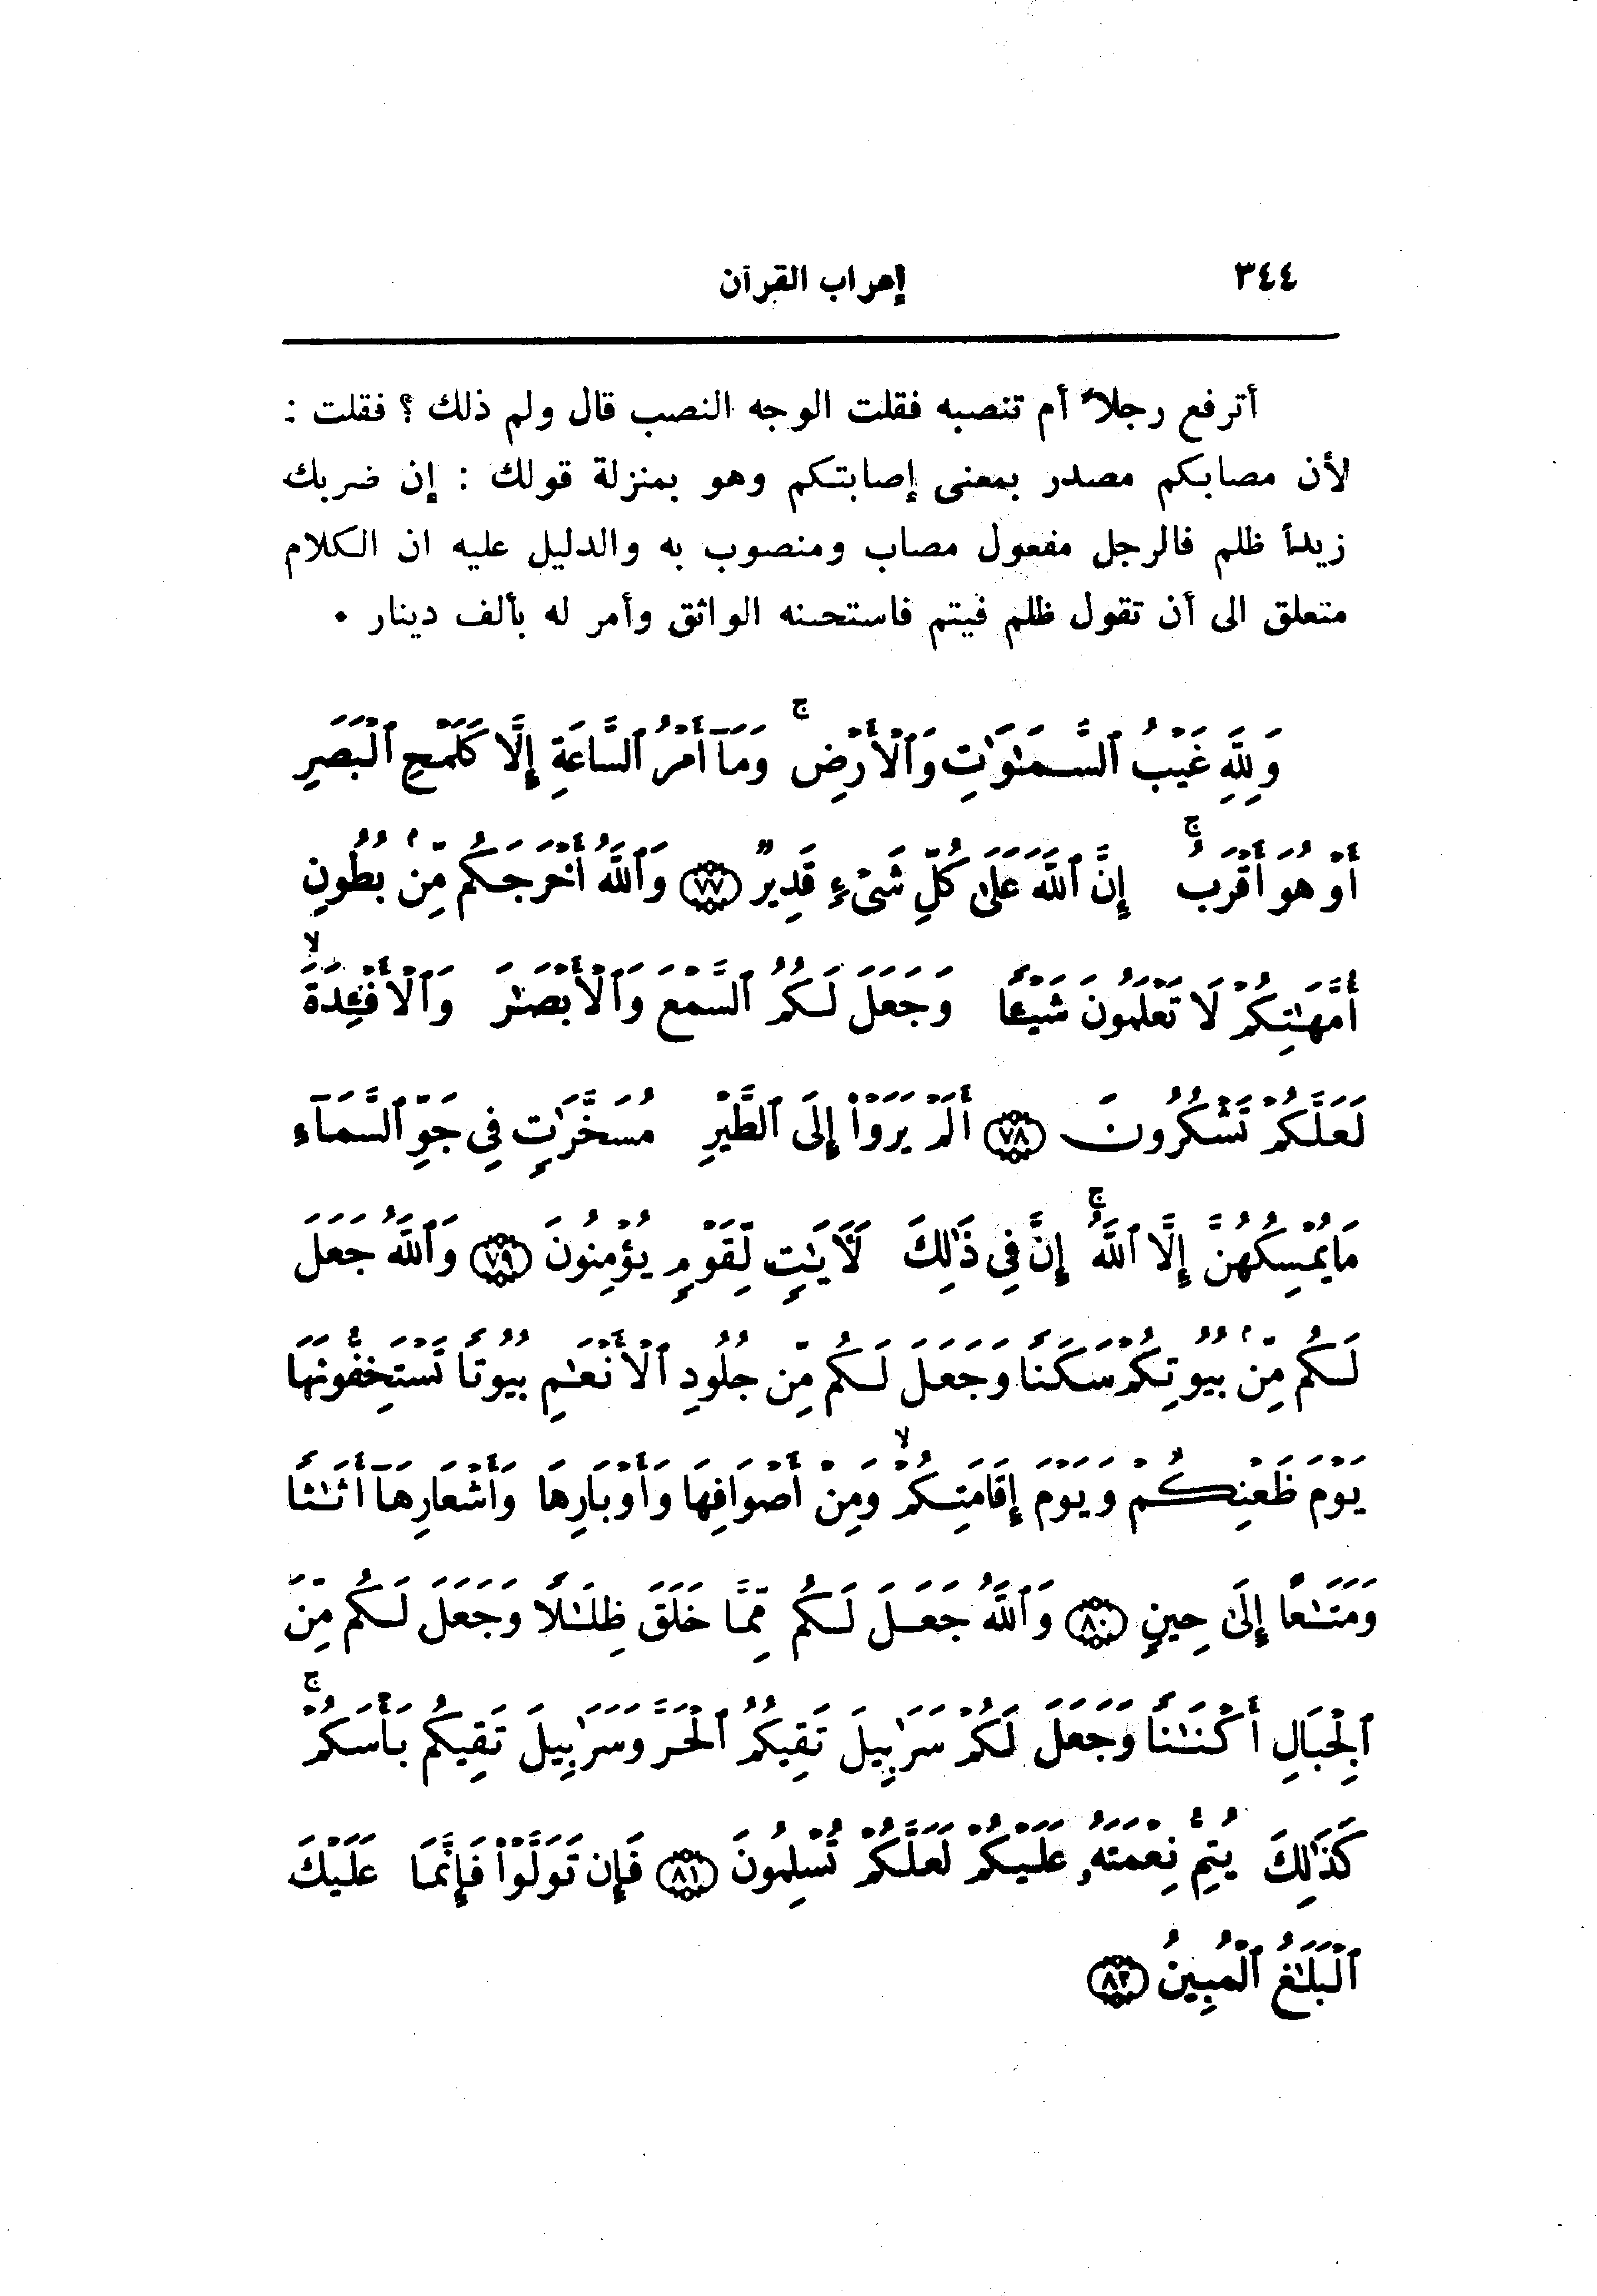 ٣٤٤
إعراب القرآن
أترفع رجلاً أم تنصبه فقلت الوجه النصب قال ولم ذلك ؟ فقلت :
لأن مصابكم مصدر بمعنى إصابتكم وهو بمنزلة قولك : إن ضربك
زيداً ظلم فالرجل مفعول مصاب ومنصوب به والدليل عليه ان الكلام
متعلق الى أن تقول ظلم فيتم فاستحسنه الواثق وأمر له بألف دينار .
وَلِلَّهِ غَيْبُ ٱلسَّمَٰوَٰتِ وَٱلْأَرْضِ ۚ وَمَآ أَمْرُ ٱلسَّاعَةِ إِلَّا كَلَمْحِ ٱلْبَصَرِ
أَوْ هُوَ أَقْرَبُ ۚ إِنَّ ٱللَّهَ عَلَىٰ كُلِّ شَىْءٍ قَدِيرٌ ﴿٧٧﴾ وَٱللَّهُ أَخْرَجَكُم مِّنۢ بُطُونِ
أُمَّهَٰتِكُمْ لَا تَعْلَمُونَ شَيْـًٔا وَجَعَلَ لَكُمُ ٱلسَّمْعَ وَٱلْأَبْصَٰرَ وَٱلْأَفْـِٔدَةَ ۙ
لَعَلَّكُمْ تَشْكُرُونَ ﴿٧٨﴾ أَلَمْ يَرَوْا۟ إِلَى ٱلطَّيْرِ مُسَخَّرَٰتٍ فِى جَوِّ ٱلسَّمَآءِ
مَا يُمْسِكُهُنَّ إِلَّا ٱللَّهُ ۚ إِنَّ فِى ذَٰلِكَ لَـَٔايَٰتٍ لِّقَوْمٍ يُؤْمِنُونَ ﴿٧٩﴾ وَٱللَّهُ جَعَلَ
لَكُم مِّنۢ بُيُوتِكُمْ سَكَنًا وَجَعَلَ لَكُم مِّن جُلُودِ ٱلْأَنْعَٰمِ بُيُوتًا تَسْتَخِفُّونَهَا
يَوْمَ ظَعْنِكُمْ وَيَوْمَ إِقَامَتِكُمْ ۙ وَمِنْ أَصْوَافِهَا وَأَوْبَارِهَا وَأَشْعَارِهَآ أَثَٰثًا
وَمَتَٰعًا إِلَىٰ حِينٍ ﴿٨٠﴾ وَٱللَّهُ جَعَلَ لَكُم مِّمَّا خَلَقَ ظِلَٰلًا وَجَعَلَ لَكُم مِّنَ
ٱلْجِبَالِ أَكْنَٰنًا وَجَعَلَ لَكُمْ سَرَٰبِيلَ تَقِيكُمُ ٱلْحَرَّ وَسَرَٰبِيلَ تَقِيكُم بَأْسَكُمْ ۚ
كَذَٰلِكَ يُتِمُّ نِعْمَتَهُۥ عَلَيْكُمْ لَعَلَّكُمْ تُسْلِمُونَ ﴿٨١﴾ فَإِن تَوَلَّوْا۟ فَإِنَّمَا عَلَيْكَ
ٱلْبَلَٰغُ ٱلْمُبِينُ ﴿٨٢﴾